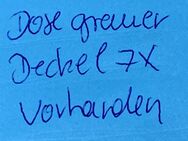 Dose grauer
Deckel 7X
Vorhanden